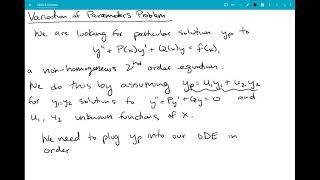 Variation of Parameters Problem
We are looking for particular solution yp to
y" + P(x)y' + Q(x)y = f(x),
a non-homogeneous 2nd order equation.
We do this by assuming yp = u1y1 + u2y2
for y1, y2 solutions to y" + Py' + Qy = 0 and
u1, u2 unknown functions of x.
We need to plug yp into our ODE in
order